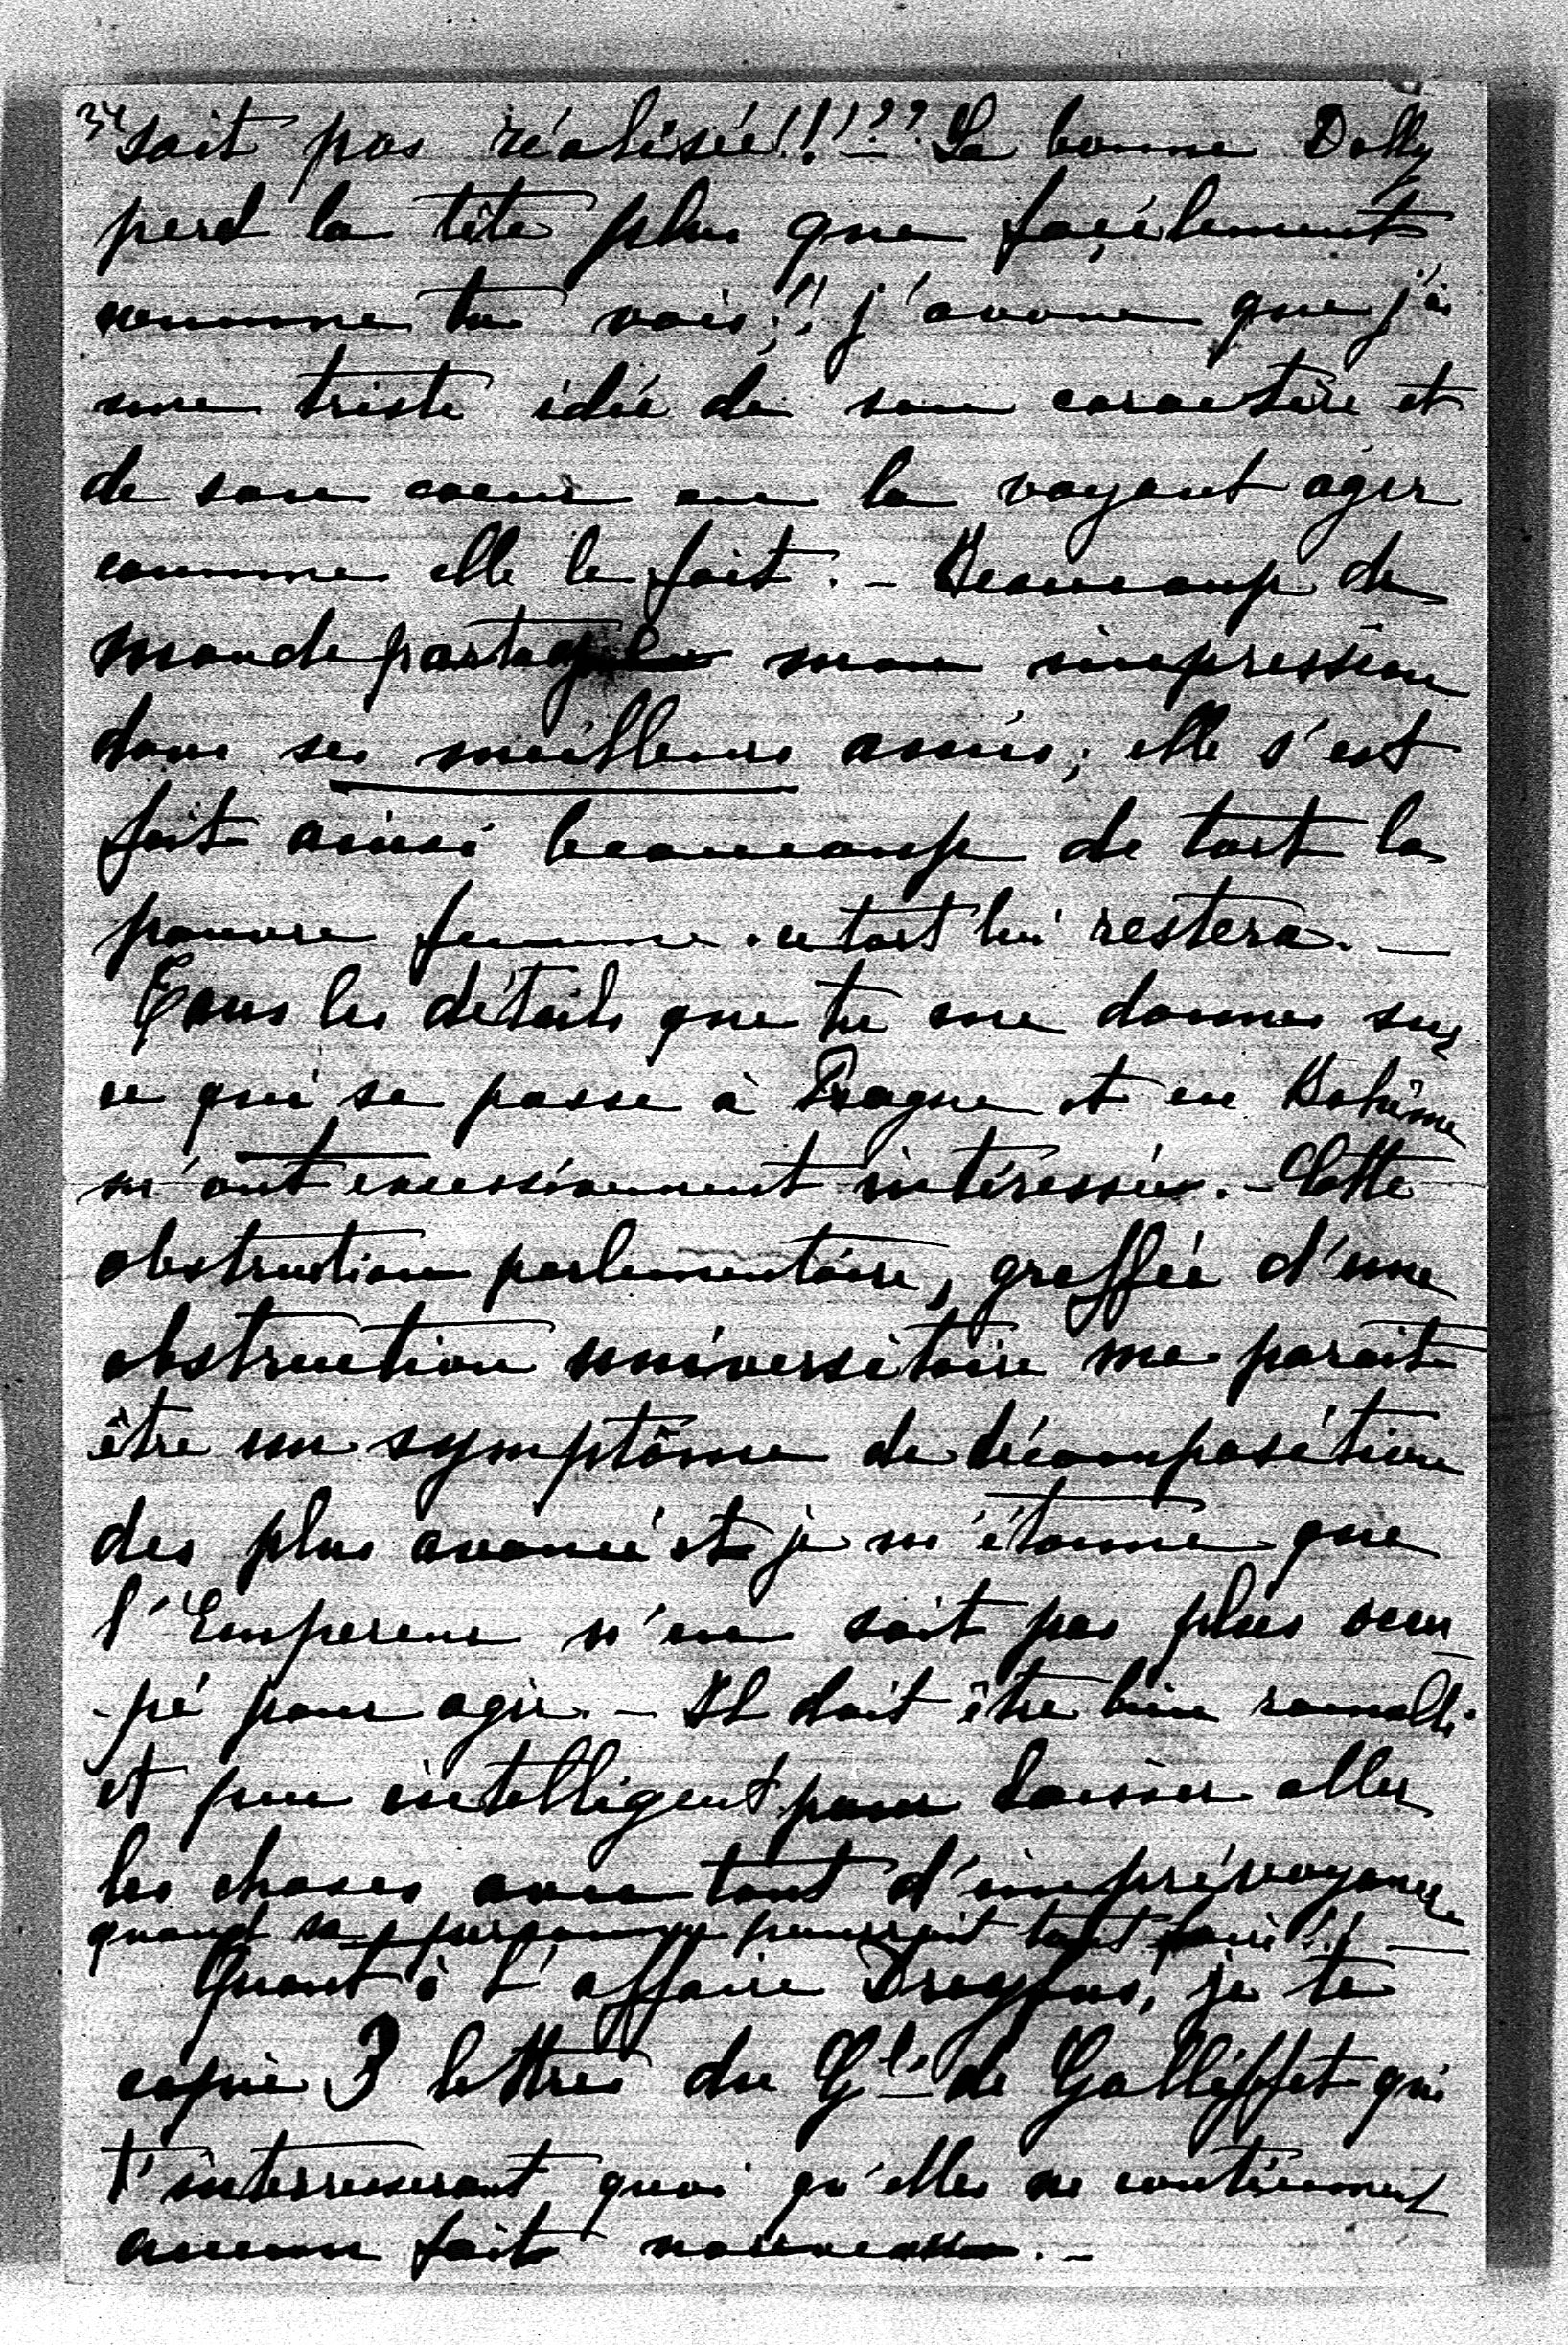 34 soit pas réalisée!!!?? La bonne Dolly
perd la tête plus que facilement
comme tu vois!! j'avoue que j'ai
une triste idée de son caractère et
de son coeur en la voyant agir
comme elle le fait. – Beaucoup de
monde partage mon impression
dans ses meilleurs amis; elle s'est
fait ainsi beaucoup de tort la
pauvre femme. ce tort lui restera. –
Tous les détails que tu me donnes sur
ce qui se passe à Prague et en Bohême
m'ont excessivement intéressée. – Cette
obstruction parlementaire, greffée d'une
obstruction universitaire me parait
être un symptôme de décomposition
des plus avancé et je m'étonne que
l'Empereur n'en soit pas plus occu
-pé pour agir. – Il doit être bien ramolli
et peu intelligent pour laisser aller
les choses avec tant d'imprévoyance
quand sa personne pourrait tout !! –
Quant à l'affaire Dreyfus, je te
copie 3 lettres du Gl. de Galliffet qui
t'interresseront quoi qu'elles ne contiennent
aucun fait nouveau. –